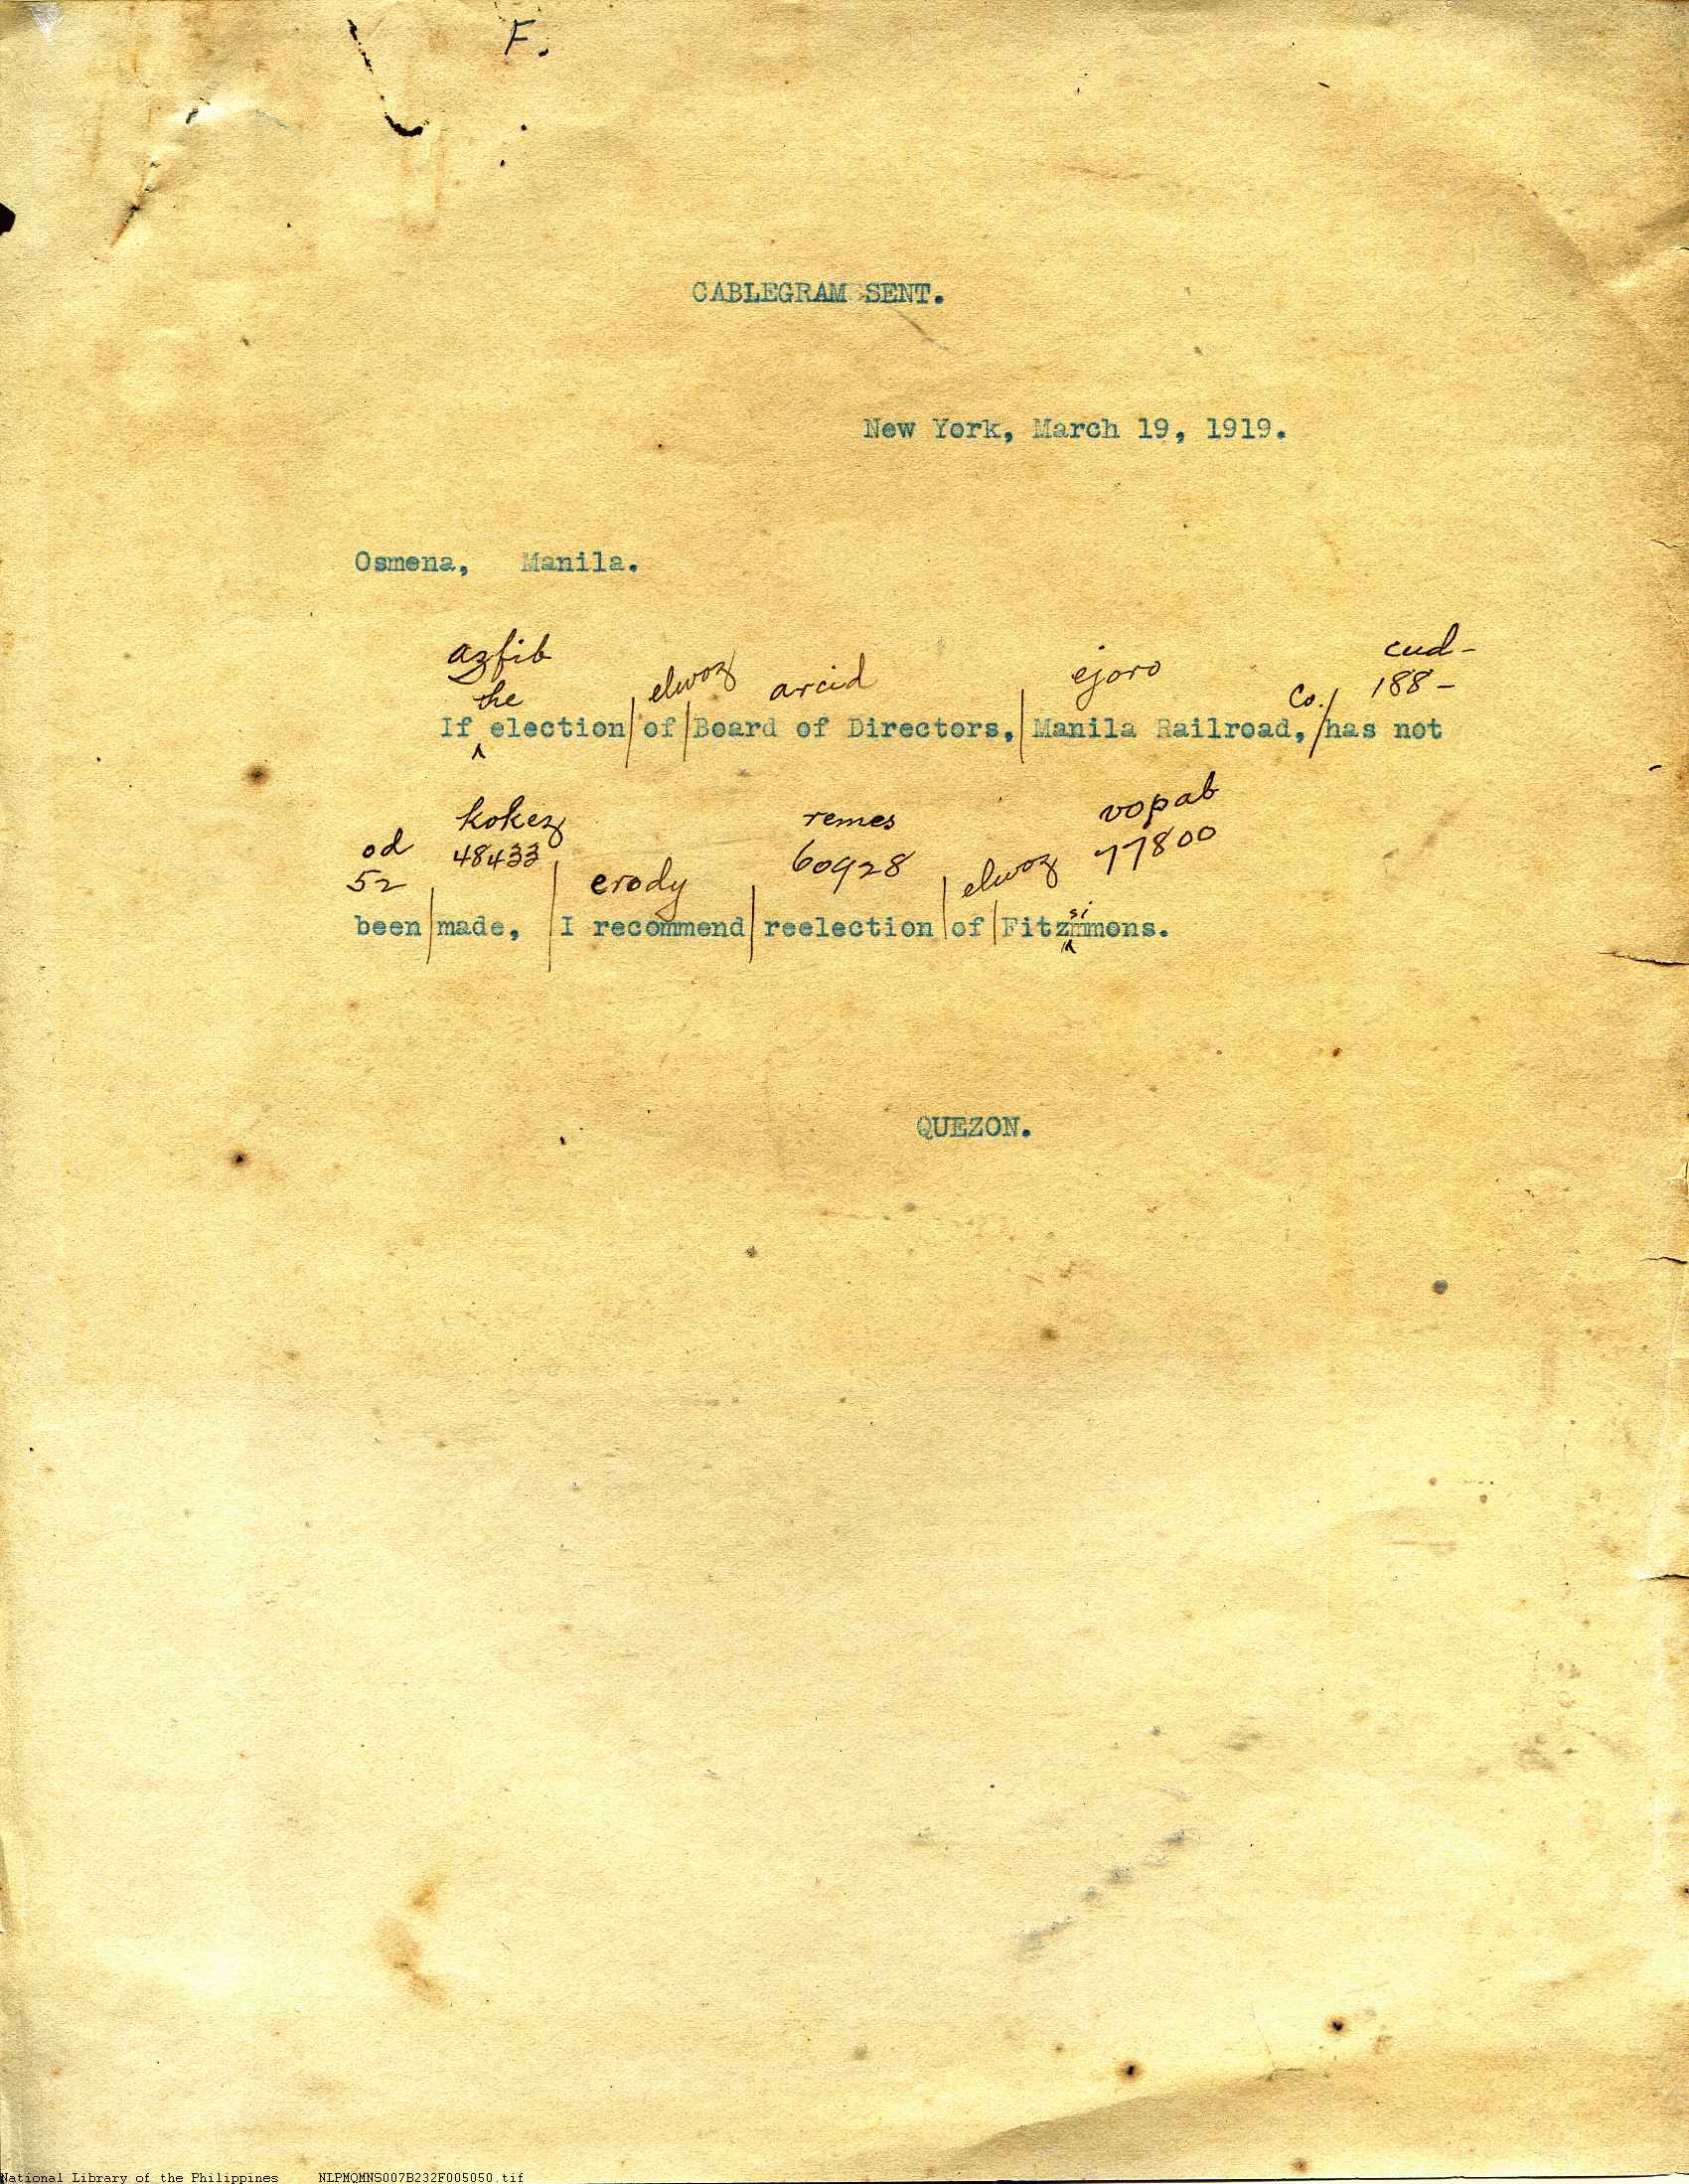 F.
CABLEGRAM SENT.
New York, March 19, 1919.
Osmena, Manila.
azfib elwoz arcid ejoro cud-
the Co. 188-
If election of Board of Directors, Manila Railroad, has not
od kokez remes vopab
52 48433 erody 60928 elwoz 77800
si
been made, I recommend reelection of Fitzmmons.
QUEZON.
National Library of the Philippines NLPMQMNS007B232F005050.tif